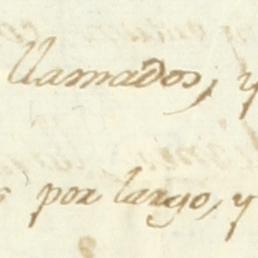 llamados; y
por largo, y